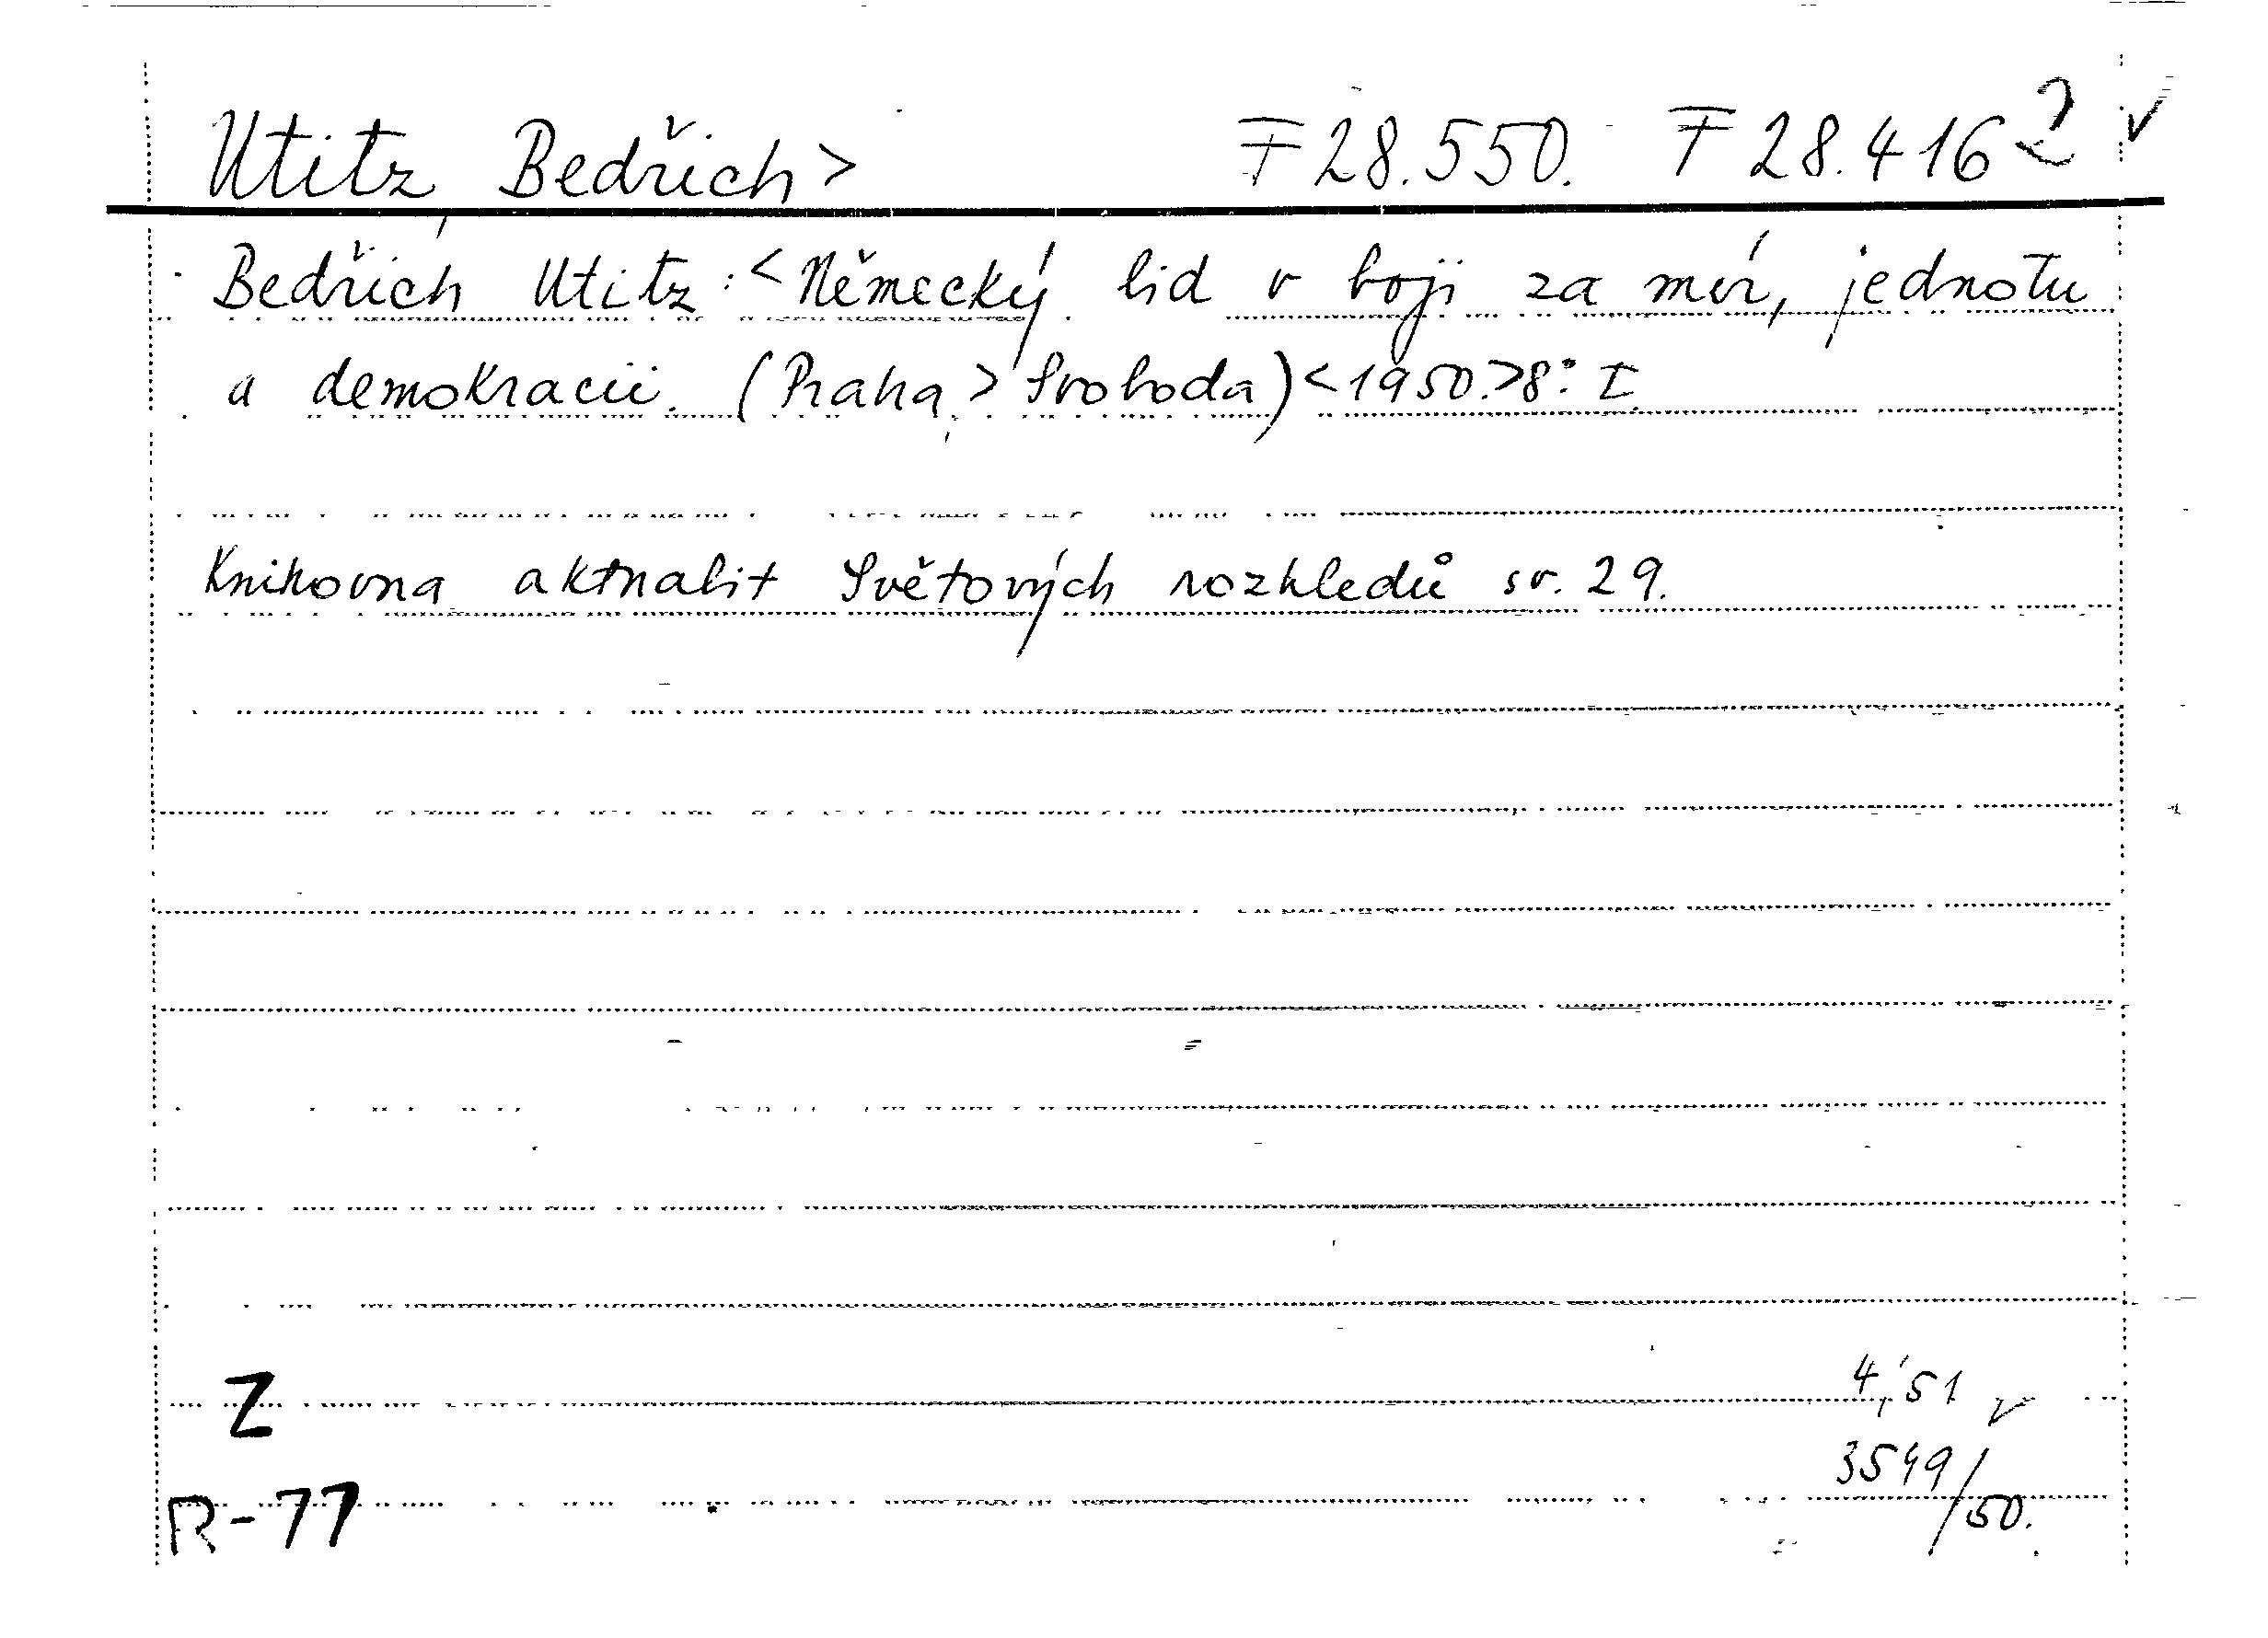 Utitz, Bedřich> F 28.550. F 28.416 2 v
Bedřich Utitz: <Německý lid v boji za mír, jednotu
a demokracii. (Praha,> Svoboda) <1950.> 8° I.
Knihovna aktualit Světových rozhledů sv. 29.
Z 4,'51 v
R-77 3549/50.